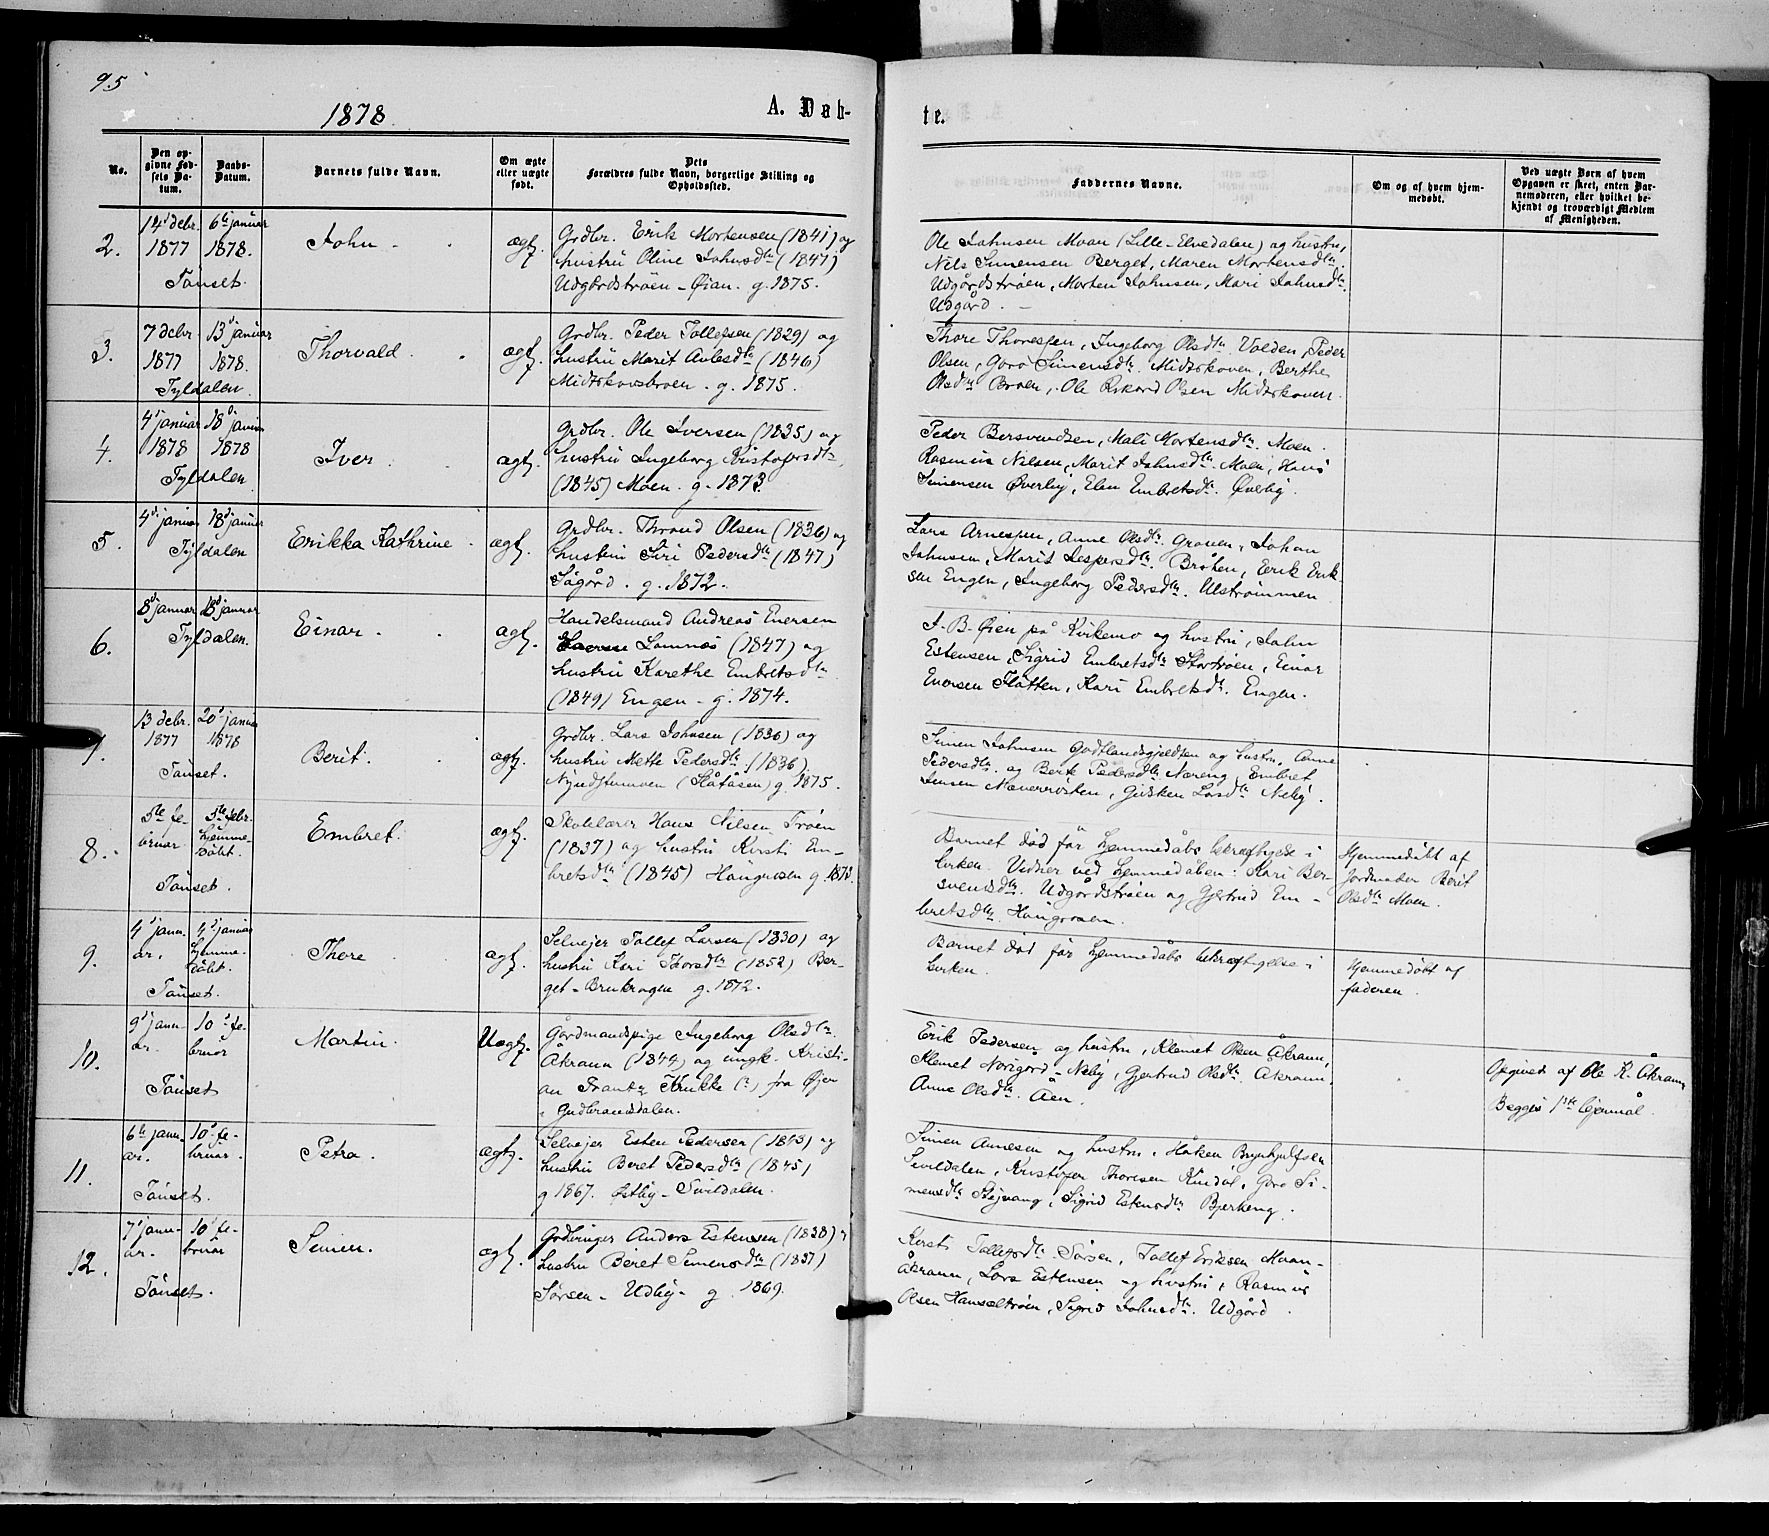 95
1878.
A. Døb-
te.
No.
Den op-
givne Fød-
sels Da-
tum.
Daabs-
Datum.
Barnets fulde Navn.
Om ægte
eller uægte
født.
Dets
Forældres fulde Navn, borgerlige Stilling og
Opholdssted.
Faddernes Navne.
Om og af hvem hjem-
medøbt.
Ved uægte Børn af hvem
Opgaven er skeet, enten Bar-
nemoderen, eller hvilket be-
kjendt og troværdigt Medlem
af Menigheden.
2.
14d debr.
1877
6te januar
1878.
Tønset.
John
ægt.
Grdbr. Erik Mortensen (1841) og
hustru Oline Johnsdtr (1847)
Udgårdstrøen - Øian. g. 1875.
Ole Johnsen Moan (Lille-Elvedalen) og hustru,
Nels Simensen Berget, Maren Mortensdtr
Udgårdstrøen, Morten Johnsen, Mari Johnsdtr
Udgård.
3.
7 debr
1877
13d januar
1878.
Tyldalen
Thorvald
ægt.
Grdbr. Peder Tollefsen (1829) og
hustru Marit Aulesdtr (1846)
Midtskovsbroen. g. 1875.
Thore Thoresen, Ingeborg Olsdtr Volden, Peder
Olsen, Goro Simensdtr. Midtskoven, Berthe
Olsdtr Broen, Ole Rikard Olsen Midtskoven
4.
4d januar
1878
18d januar
1878
Tyldalen
Iver
ægt.
Grdbr. Ole Iversen (1835) og
hustru Ingeborg Kristofersdtr
(1845) Moen. g. 1873.
Peder Bersvendsen, Mali Mortensdtr. Moen.
Rasmus Nilsen, Marit Johnsdtr. Moen, Hans
Simensen Øverby, Elen Embretsdtr. Øverby.
5.
4d januar
18d januar
Tyldalen
Erikka Kathrine
ægt.
Grdbr. Thrond Olsen (1836) og
hustru Siri Pedersdtr (1847)
Sågård. g. 1872.
Lars Arnesen, Anne Olsdtr. Grauen, Johan
Johnsen, Marit Jespersdtr. Bråten, Erik Erik
sen Engen, Ingeborg Pedersdtr. Ulstrømmen
6.
8d januar
18d januar
Tyldalen.
Einar
ægt.
Handelsmand Andreas Enersen
Lomnes (1847) og
hustru Karethe Embretsdtr
(1849) Engen - g. 1874.
J. B. Øien på Kvikemo og hustru, John
Estensen, Sigrid Embretsdtr Stortrøen, Einar
Enersen Flåtten, Kari Embretsdtr. Engen.
7.
13 debr.
1877
20d januar
1878
Tønset.
Berit.
ægt.
Grdbr. Lars Johnsen (1836) og
hustru Mette Pedersdtr (1836)
(Flåtåsen) g. 1875.
Simen Johnsen og hustru, Anne
Pedersdtr. og Berit Pedersdtr Næreng, Embret
Jensen, Gidsken Larsdtr Neby.
8.
5te fe-
bruar
5te febr.
hjemme-
døbt.
Tønset.
Embret.
ægt.
Skolelærer Hans Nilsen Trøen
(1837) og hustru Kersti Em-
bretsdtr (1845) Haugmoen g. 1873.
Barnet død før hjemmedåbs bekræftigelse i
kirken. Vidner ved hjemmedåben: Kari Ber-
svensdtr. Udgårdstrøen og Gjertrud Em-
bretsdtr Haugmoen.
Hjemmedøbt af
Jordmoder Berit
Olsdtr Moen.
9.
4d janu-
ar.
4d januar
hjemme-
døbt.
Tønset.
Thore
ægt.
Selvejer Tollef Larsen (1830) og
hustru Kari Thorsdtr (1852) Ber-
get - Brukragen g. 1872.
Barnet død før hjemmedåbs bekræftigelse i
kirken.
Hjemmedøbt af
faderen.
10.
9d janu-
ar.
10d fe-
bruar
Tønset
Martin.
Uægt.
Gårdmandspige Ingeborg Olsdtr.
Åkrann (1844) og ungk. Kristi-
an Frantz (?) fra Øjer
i Gudbrandsdalen.
Erik Pedersen og hustru, Klemet Olsen Åkrann,
Klemet Norigard - Neby, Gjertrud Olsdtr. Åkrann,
Anne Olsdtr. Åen.
Opgivet af Ole K. Åkrann
Begges 1ste lejermål.
11.
6te janu-
ar.
10d fe-
bruar.
Tønset.
Petra.
ægt.
Selvejer Esten Pedersen (1843) og
hustru Beret Pedersdtr (1845)
g 1867. Østby - Tvildalen.
Simen Arnesen og hustru, Håken Brynhjulfsen
Tvildalen, Kristofer Thoresen Kindøl, Goro Si-
mensdtr Stejvang, Sigrid Estensdtr Bjerkeng.
12.
7d janu-
ar.
10d fe-
bruar
Tønset.
Simen.
ægt.
Gårdbruger Anders Estensen (1838) og
hustru Beret Simensdtr (1837)
Sørsen - Udby - g. 1869.
Kersti Tollefsdtr. Sørsen, Tollef Eriksen Moan -
Åkrann, Lars Estensen og hustru, Rasmus
Olsen Hanseltrøen, Sigrid Johnsdtr. Udgård.